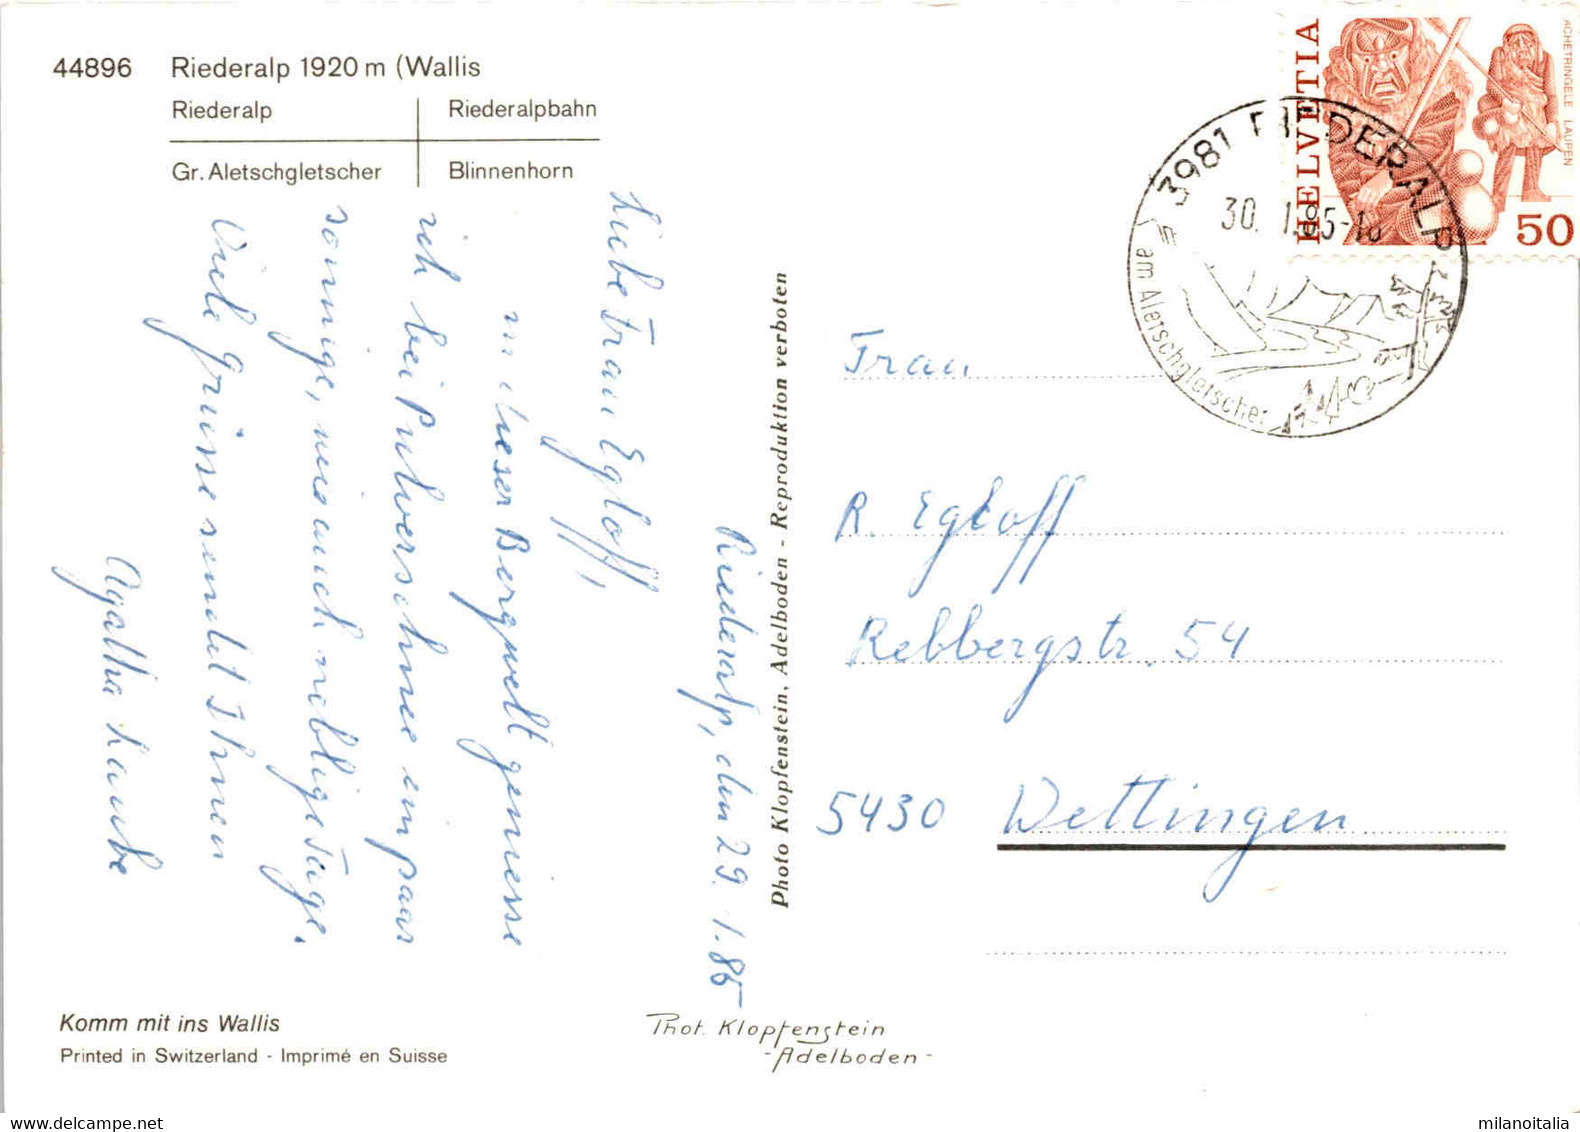 44896 Riederalp 1920 m (Wallis
Riederalp Riederalpbahn
Gr. Aletschgletscher Blinnenhorn
Riederalp, den 29. 1. 85
Liebe Frau Egloff,
In dieser Bergwelt geniesse
ich bei Pulverschnee ein paar
sonnige, und auch neblige Tage.
Viele Grüsse sendet Ihnen
Agatha Laube
Komm mit ins Wallis
Printed in Switzerland - Imprimé en Suisse
Phot. Klopfenstein
-Adelboden-
Photo Klopfenstein, Adelboden - Reproduktion verboten
HELVETIA
ACHETRINGELE LAUPEN
50
3981 RIEDERALP
30. 1. 85-18
am Aletschgletscher
Frau
R. Egloff
Rebbergstr. 54
5430 Wettingen
milanoitalia